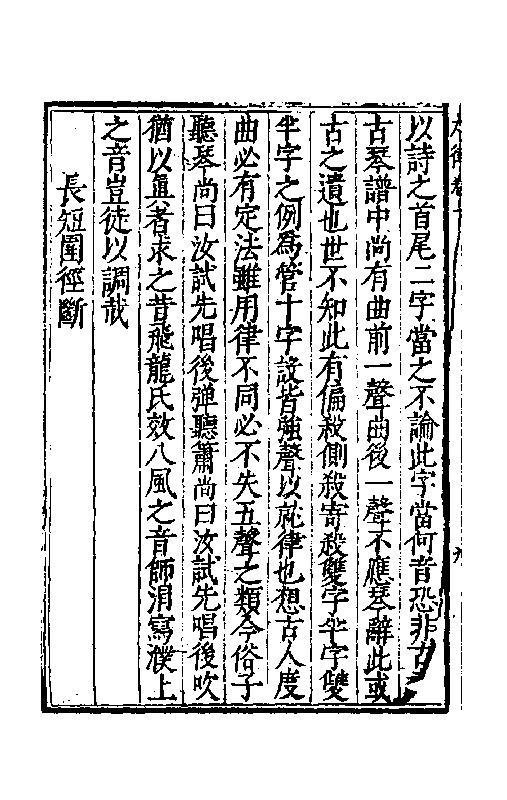 以詩之首尾二字當之不論此字當何音恐非古
古琴譜中尚有曲前一聲曲後一聲不應琴辭此或
古之遺也世不知此有偏殺側殺寄殺雙字半字雙
半字之例爲管十字設皆強聲以就律也想古人度
曲必有定法雖用律不同必不失五聲之類今俗子
聽琴尚曰汝試先唱後弹聽簫尚曰汝試先唱後吹
猶以眞者求之昔飛龍氏效八風之音師涓寫濮上
之音豈徒以調哉
長短圍徑斷